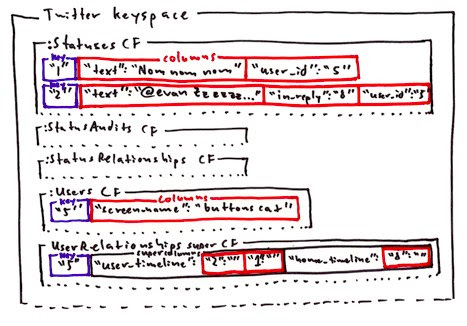 Twitter keyspace
:Statuses CF
key columns
"1" "text":"Nom nom nom" "user_id":"5"
"2" "text":"@evan Zzzzzz..." "in_reply":"8" "user_id":"5
:StatusAudits CF
:StatusRelationships CF
:Users CF
key columns
"5" "screen_name":"buttonscat"
UserRelationships super CF
key supercolumns
"5" "user_timeline": "2":"" "1":"" "home_timeline": "8":""